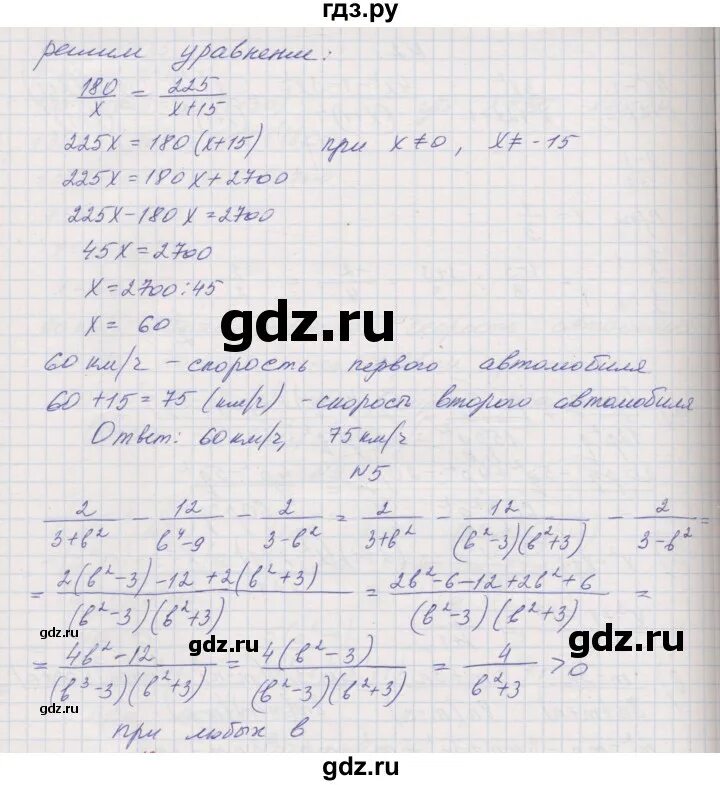 гдз.ру
решим уравнение:
180/x = 225/x+15
225x = 180(x+15) при x≠0, x≠-15
225x = 180x + 2700
225x - 180x = 2700
45x = 2700
x = 2700:45
x = 60
gdz.ru
60 км/ч - скорость первого автомобиля
60 + 15 = 75 (км/ч) - скорость второго автомобиля
Ответ: 60 км/ч, 75 км/ч
N5
2/3+b² - 12/b⁴-9 - 2/3-b² = 2/3+b² - 12/(b²-3)(b²+3) - 2/3-b² =
= 2(b²-3)-12+2(b²+3)/(b²-3)(b²+3) = 2b²-6-12+2b²+6/(b²-3)(b²+3) =
gdz.ru
gdz.ru
= 4b²-12/(b³-3)(b²+3) = 4(b²-3)/(b²-3)(b²+3) = 4/b²+3 > 0
gdz.ru
при любых b
gdz.ru